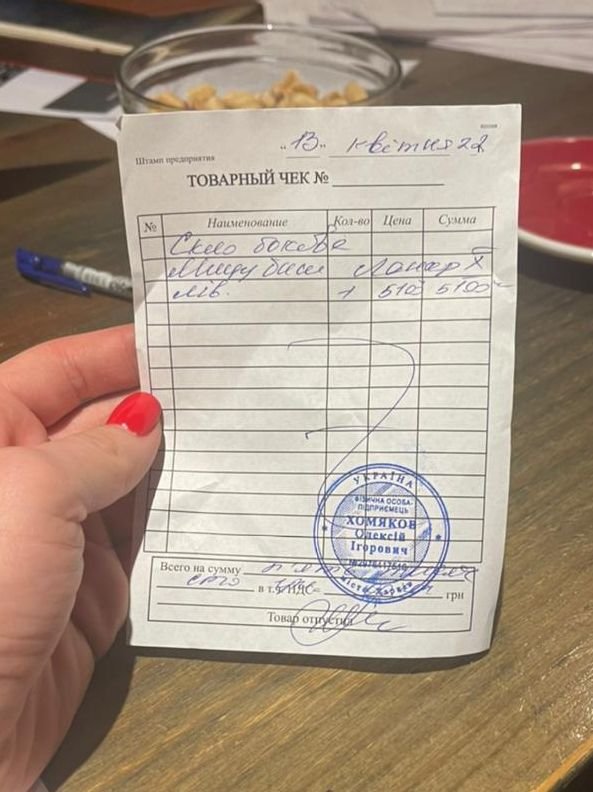 "13" квітня 22
Штамп предприятия
ТОВАРНЫЙ ЧЕК №
№ Наименование Кол-во Цена Сумма
Скло бокове
Міцубісі Лансер X
лів. 1 5100 5100
УКРАЇНА
ФІЗИЧНА ОСОБА-
ПІДПРИЄМЕЦЬ
ХОМЯКОВ
Олексій
Ігорович
місто Харків
Всего на сумму п'ять тисяч
сто грн в т.ч. НДС= грн
Товар отпустил